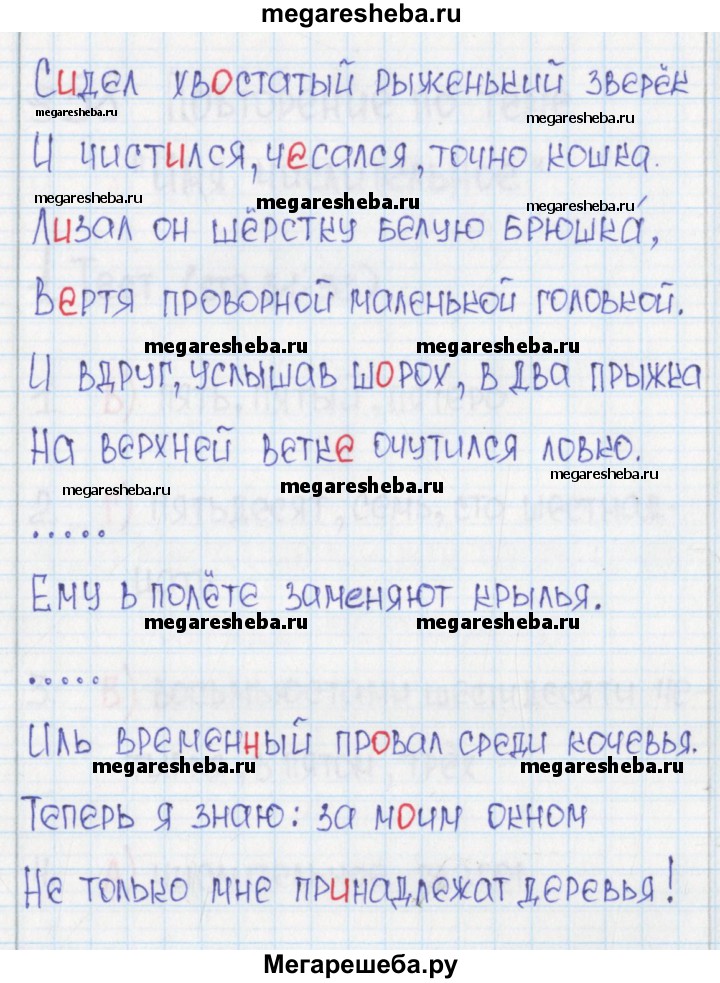 megaresheba.ru
Сидел хвостатый рыженький зверёк
megaresheba.ru megaresheba.ru
И чистился, чесался, точно кошка.
megaresheba.ru megaresheba.ru megaresheba.ru
Лизал он шёрстку белую брюшка́,
Вертя проворной маленькой головкой.
megaresheba.ru megaresheba.ru
И вдруг, услышав шорох, в два прыжка
На верхней ветке очутился ловко.
megaresheba.ru megaresheba.ru megaresheba.ru
.....
Ему в полёте заменяют крылья.
megaresheba.ru megaresheba.ru
.....
Иль временный провал среди кочевья.
megaresheba.ru megaresheba.ru
Теперь я знаю: за моим окном
Не только мне принадлежат деревья!
Мегарешеба.ру